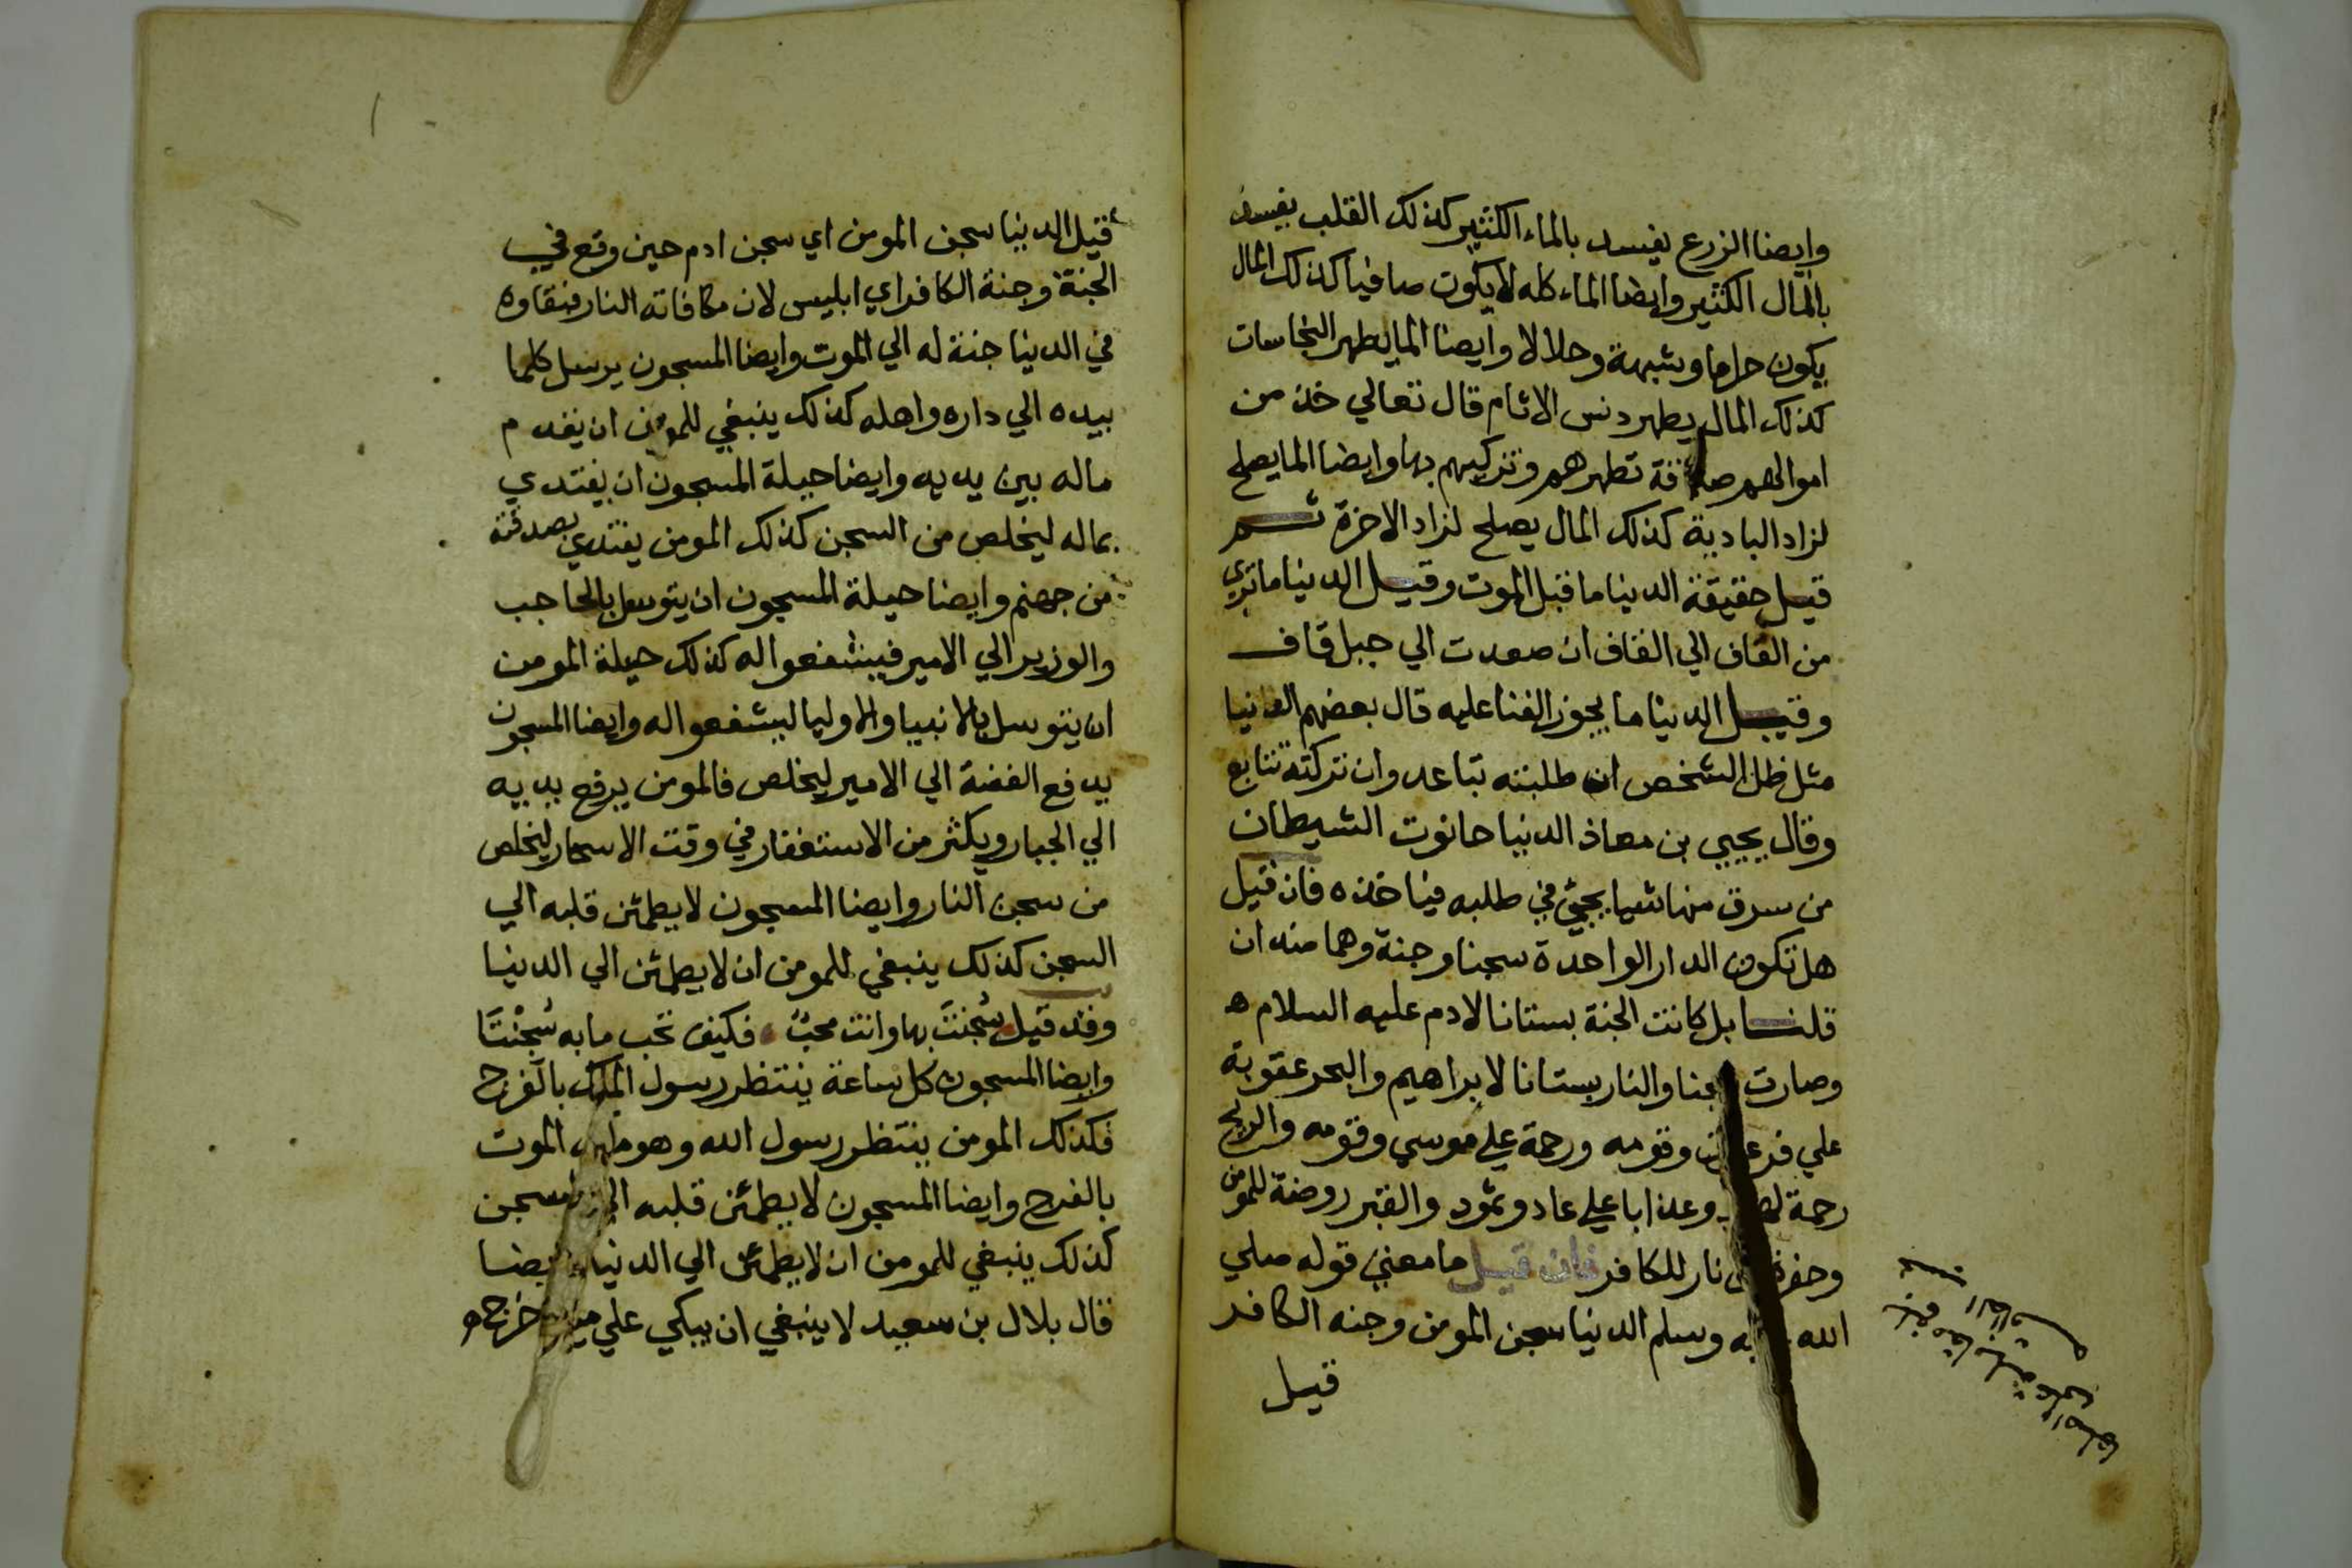 وايضا الزرع يفسد بالماء الكثير كذلك القلب يفسد
بالمال الكثير وايضا الماء كله لا يكون صافيا كذلك المال
يكون حراما وشبهة وحلالا وايضا الما يطهر النجاسات
كذلك المال يطهر دنس الاثام قال تعالي خذ من
اموالهم صدقة تطهرهم وتزكيهم بها وايضا الما يصلح
لزاد البادية كذلك المال يصلح لزاد الاخرة ثم
قيل حقيقة الدنيا ما قبل الموت وقيل الدنيا ما تري
من القاف الي القاف ان صعدت الي جبل قاف
وقيل الدنيا ما يجوز الفنا عليه قال بعضهم الدنيا
مثل ظل الشخص ان طلبته تباعد وان تركته تتابع
وقال يحيي بن معاذ الدنيا حانوت الشيطان
من سرق منها شيا يجئ في طلبه فياخذه فان قيل
هل تكون الدار الواحدة سجنا وجنة وهما ضدان
قلنا بل كانت الجنة بستانا لادم عليه السلام ه
وصارت سجنا والنار بستانا لابراهيم والبحر عقوبة
علي فرعون وقومه ورحمة علي موسي وقومه والريح
رحمة وعذابا علي عاد وثمود والقبر روضة للمومن
وحفرة نار للكافر فان قيل ما معني قوله صلي
الله عليه وسلم الدنيا سجن المومن وجنه الكافر
قيل
قيل الدنيا سجن المومن اي سجن ادم حين وقع في
الجنة وجنة الكافر اي ابليس لان مكافاته النار فبقاوه
في الدنيا جنة له الي الموت وايضا المسجون يرسل كلما
بيده الي داره واهله كذلك ينبغي للمومن ان يقدم
ماله بين يديه وايضا حيلة المسجون ان يفتدي
بماله ليخلص من السجن كذلك المومن يفتدي بصدقته
من جهنم وايضا حيلة المسجون ان يتوسل بالحاجب
والوزير الي الامير فيشفعوا له كذلك حيلة المومن
ان يتوسل بالانبيا والاوليا ليشفعوا له وايضا المسجون
يدفع الفضة الي الامير ليخلص فالمومن يرفع يديه
الي الجبار ويكثر من الاستغفار في وقت الاسحار ليخلص
من سجن النار وايضا المسجون لا يطمئن قلبه الي
السجن كذلك ينبغي للمومن ان لا يطمئن الي الدنيا
وقد قيل سُجنتَ بها وانت محبٌ فكيف تحب ما به سُجِنْتَا
وايضا المسجون كل ساعة ينتظر رسول الملك بالفرج
فكذلك المومن ينتظر رسول الله وهو ملك الموت
بالفرج وايضا المسجون لا يطمئن قلبه الي السجن
كذلك ينبغي للمومن ان لا يطمئن الي الدنيا وايضا
قال بلال بن سعيد لا ينبغي ان يبكي علي من خرج ه